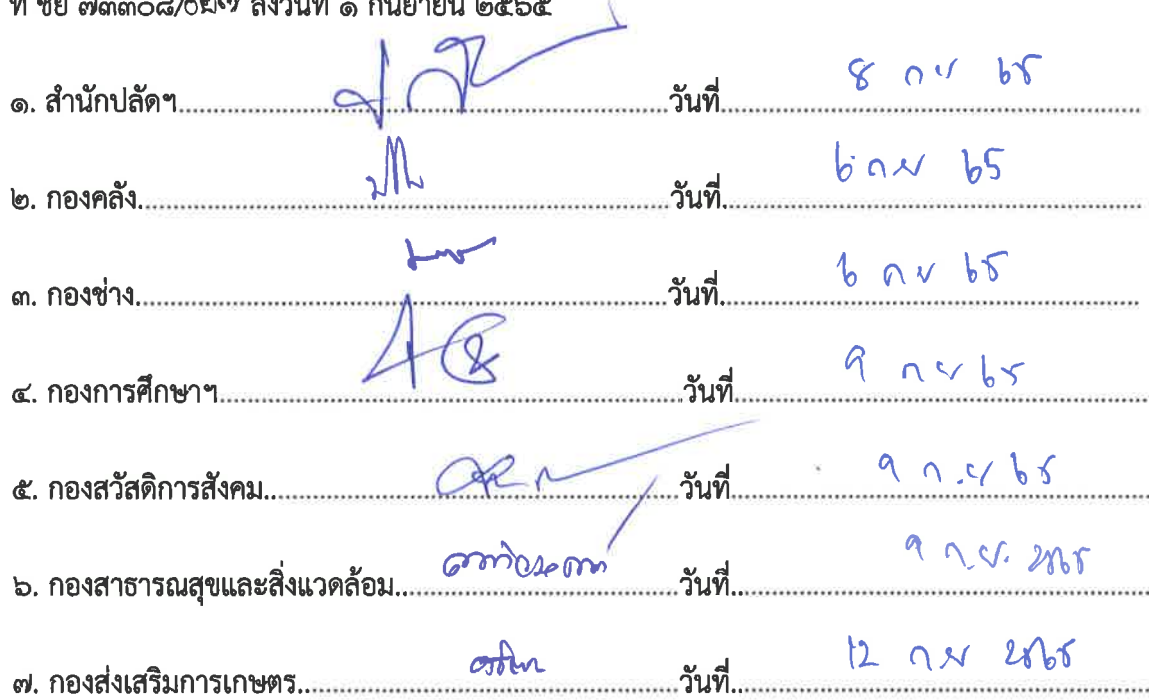 ที่ ชย ๗๓๓๐๘/ ลงวันที่ ๑ กันยายน ๒๕๖๕
๑. สำนักปลัดฯ วันที่ 8 กย 65
๒. กองคลัง วันที่ 6 กย 65
๓. กองช่าง วันที่ 6 กย 65
๔. กองการศึกษาฯ วันที่ 9 กย 65
๕. กองสวัสดิการสังคม วันที่ 9 ก.ย 65
๖. กองสาธารณสุขและสิ่งแวดล้อม วันที่ 9 ก.ย. 2565
๗. กองส่งเสริมการเกษตร วันที่ 12 กย 2565